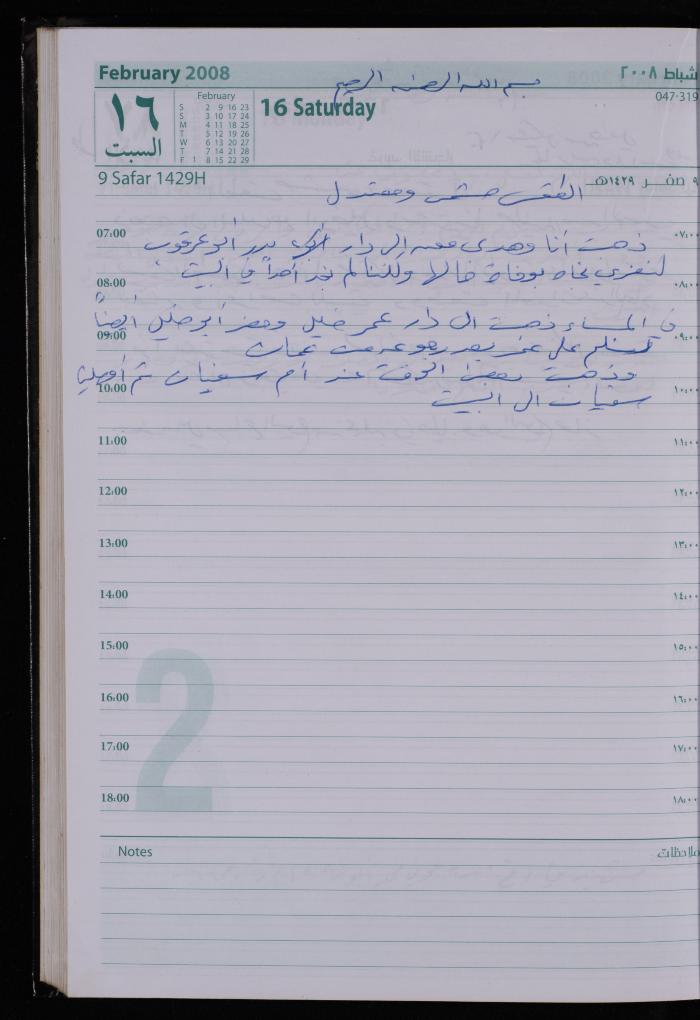 February 2008
شباط ٢٠٠٨
بسم الله الرحمن الرحيم
047-319
١٦
السبت
February
S 2 9 16 23
S 3 10 17 24
M 4 11 18 25
T 5 12 19 26
W 6 13 20 27
T 7 14 21 28
F 1 8 15 22 29
16 Saturday
9 Safar 1429H
٩ صفر ١٤٢٩هـ
الطقس مشمس ومعتدل
07:00
٠٧:٠٠
ذهبت أنا وهدى معه الى دار بدر أبو عرقوب
لنعزي نجاه بوفاة خالها ولكننا لم نجد أحداً في البيت
08:00
٠٨:٠٠
في المساء ذهبت الى دار عمر خليل وحضر أبو خليل أيضاً
09:00
٠٩:٠٠
لنسلم على عمر بعد رجوعه من عمان
وذهبت بعض الوقت عند أم سفيان ثم أوصلنا
10:00
١٠:٠٠
سفيان الى البيت
11:00
١١:٠٠
12:00
١٢:٠٠
13:00
١٣:٠٠
14:00
١٤:٠٠
15:00
١٥:٠٠
16:00
١٦:٠٠
17:00
١٧:٠٠
18:00
١٨:٠٠
2
Notes
ملاحظات